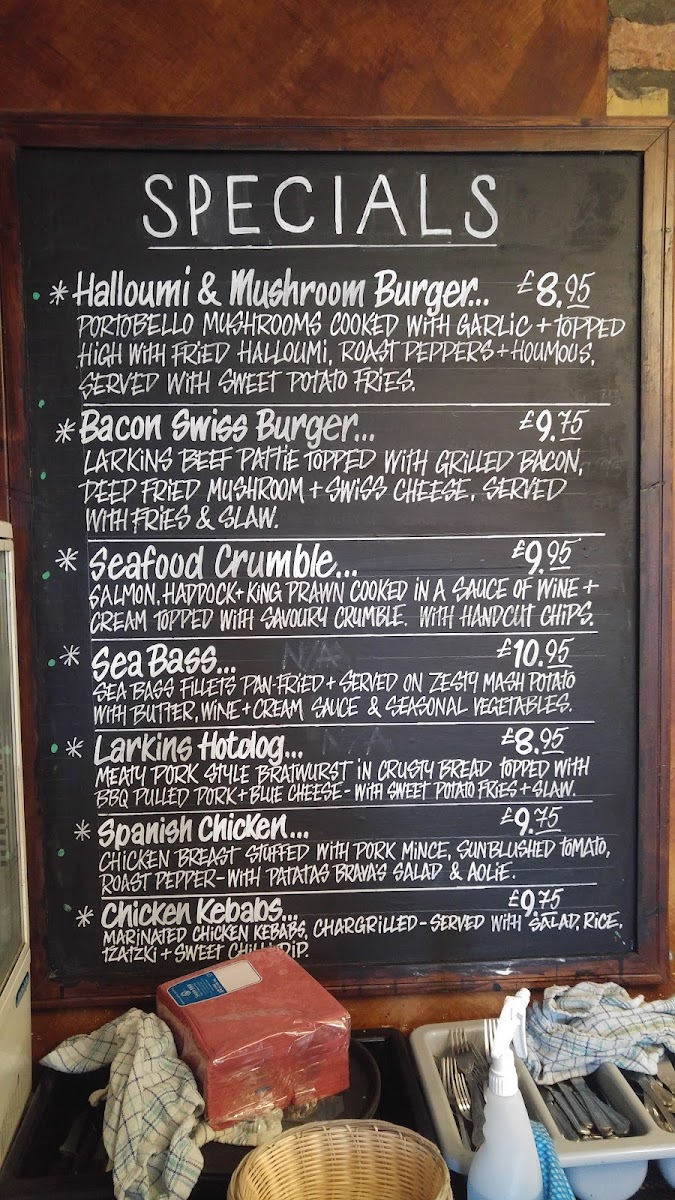 SPECIALS
* Halloumi & Mushroom Burger... £8.95
PORTOBELLO MUSHROOMS COOKED WITH GARLIC + TOPPED
HIGH WITH FRIED HALLOUMI, ROAST PEPPERS + HOUMOUS,
SERVED WITH SWEET POTATO FRIES.
* Bacon Swiss Burger... £9.75
LARKINS BEEF PATTIE TOPPED WITH GRILLED BACON,
DEEP FRIED MUSHROOM + SWISS CHEESE, SERVED
WITH FRIES & SLAW.
* Seafood Crumble... £9.95
SALMON, HADDOCK + KING PRAWN COOKED IN A SAUCE OF WINE +
CREAM TOPPED WITH SAVOURY CRUMBLE. WITH HANDCUT CHIPS.
* Sea Bass... N/A £10.95
SEA BASS FILLETS PAN-FRIED + SERVED ON ZESTY MASH POTATO
WITH BUTTER, WINE + CREAM SAUCE & SEASONAL VEGETABLES.
* Larkins Hotdog... N/A £8.95
MEATY PORK STYLE BRATWURST IN CRUSTY BREAD TOPPED WITH
BBQ PULLED PORK + BLUE CHEESE - WITH SWEET POTATO FRIES + SLAW.
* Spanish Chicken... £9.75
CHICKEN BREAST STUFFED WITH PORK MINCE, SUNBLUSHED TOMATO,
ROAST PEPPER - WITH PATATAS BRAVA'S SALAD & AOLIE.
* Chicken Kebabs... £9.75
MARINATED CHICKEN KEBABS, CHARGRILLED - SERVED WITH SALAD, RICE,
TZATZKI + SWEET CHILLI DIP.